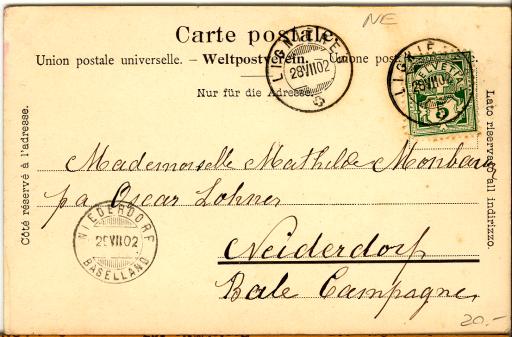 NE
Carte postale.
Union postale universelle. – Weltpostverein. – Unione postale
Nur für die Adresse.
LIGNIÈRES
28 VII 02
LIGNIÈRES
28 VII 02
HELVETIA
5
Côté réservé à l'adresse.
Lato riservato all indirizzo.
Mademoiselle Mathilde
pa Oscar Lohner
Neiderdorf
Bale Campagne
NIEDERDORF
29 VII 02
BASELLAND
20.-